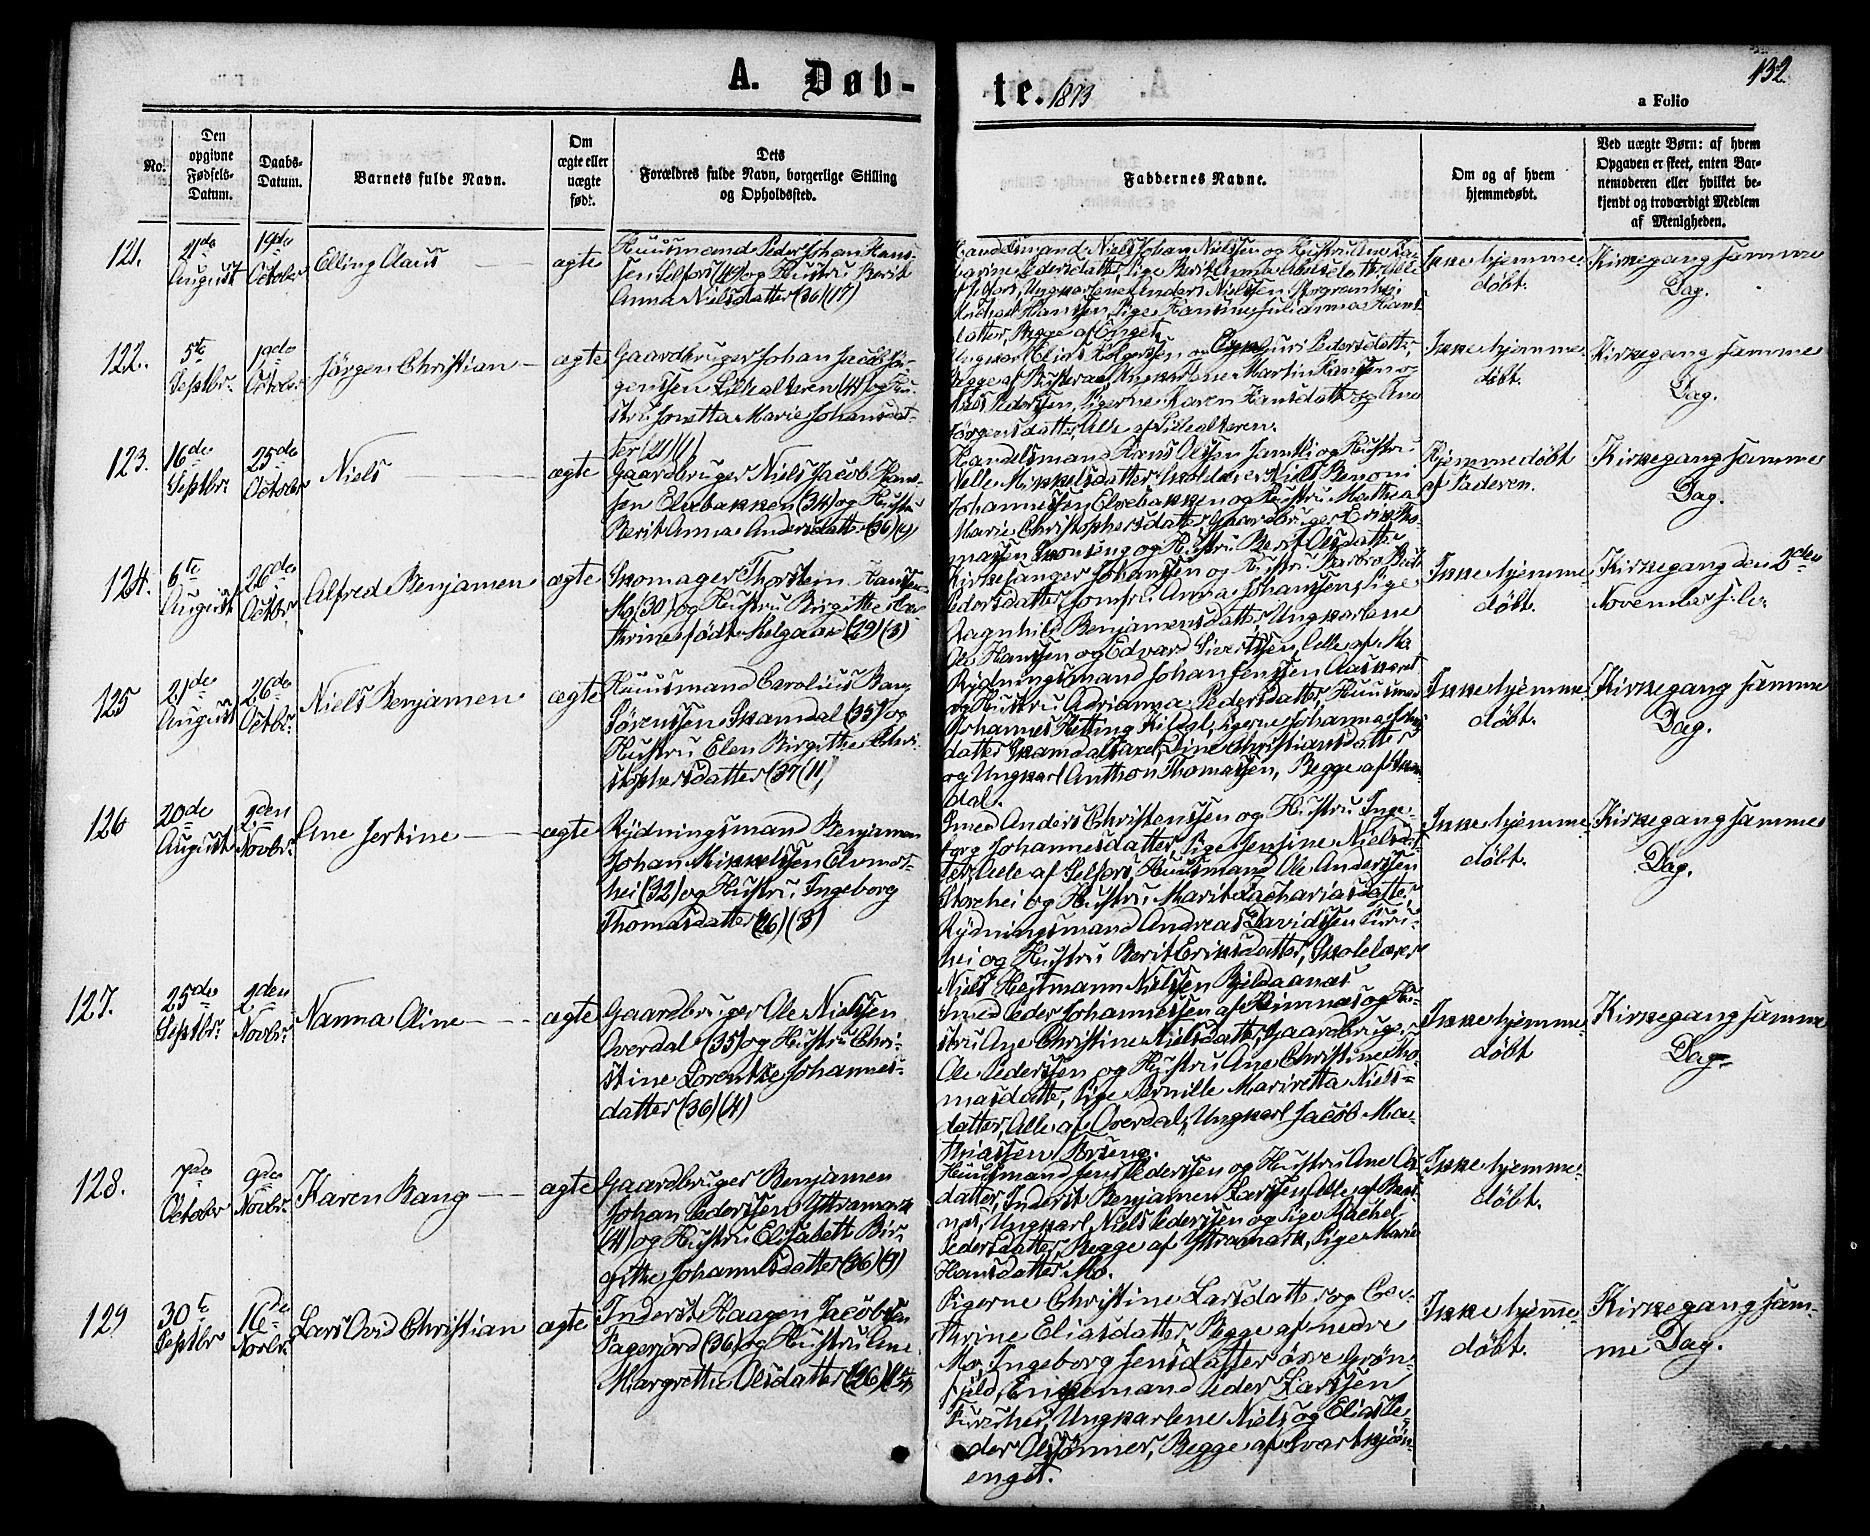 132
A. Døb-
te. 1873
a Folio
No.
Den opgivne Fødsels-Datum.
Daabs-Datum.
Barnets fulde Navn.
Om ægte eller uægte født.
Dets
Forældres fulde Navn, borgerlige Stilling
og Opholdssted.
Faddernes Navne.
Om og af hvem
hjemmedøbt.
Ved uægte Børn: af hvem
Opgaven er skeet, enten Bar-
nemoderen eller hvilket be-
kjendt og troværdigt Medlem
af Menigheden.
121.
21de August
19de October
Elling Claus
ægte
Huusmand Peder Johan Hans-
sen Selfors (42) og Hustru Berit
Anna Nielsdatter (36) (17)
Handelsmand Niels Johan Nielssen og Hustru Ane Ca-
tharine Pedersdatter, Pige Berit Anna
Selfors, Ungkarlene Anders Nielssen Storgronhei
Michael Hanssen, Pige Hansine Julianna Hans-
datter, Begge af Enget.
Ikke hjemme-
døbt.
Kirkegang samme
Dag.
122.
5te Septbr.
19de Octobr.
Jörgen Christian
ægte
Gaardbruger Johan Jacob Jör-
genssen Lillealteren (41) og Hu-
stru Jonetta Marie Johansdat-
ter (21) (1)
Ungkarl Elias Holgerssen og Guri Pedersdatter,
Begge af Ungkarlene Martin Hanssen og
Niels Pederssen, Pigerne Karen Hansdatter og Ane
Jörgensdatter, Alle af Lillealteren.
Ikke hjemme-
döbt.
Kirkegang samme
Dag.
123.
16de Septbr.
25de October
Niels
ægte
Gaardbruger Niels Jacob Hans-
sen Elvebakken (34) og Hustru
Berit Anna Andersdatter (36) (4)
Handelsmand Hans Olssen Jamtli og Hustru
Pelle Mikkelsdatter, Skolelærer Niels Benoni
Johannessen Elvebakken og Hustru Mathea
Marie Christophersdatter, Gaardbruger Erik Tho-
massen Skonseng og Hustru Berit Olsdatter
Hjemmedöbt
af Faderen.
Kirkegang samme
Dag.
124.
6te August
26de Octbr.
Alfred Benjamen
ægte
Skomager Thorstein Hanssen
Mo (30) og Hustru Birgitte Ca-
thrine född Melgaard (29) (3)
Kirkesanger Johanssen og Hustru Barbro
Pedersdatter, Jomfru Anna Johanssen, Pige
Ragnhild Benjamensdatter, Ungkarlene
Ole Hanssen og Edvard Sivertssen, Alle af Mo
Ikke hjemme-
döbt.
Kirkegang den 2den
November
125
21de August
26de Octbr.
Niels Benjamen
ægte
Huusmand Carolius Bang
Sörenssen Skamdal (35) og
Hustru Elen Birgithe Chri-
stophersdatter (37) (11)
Rydningsmand Johan Jenssen
og Hustru Adrianna Pedersdatter, Huusmand
Johannes Hetting Kildal, Pigerne Johanna
datter Skamdalsaxel, Dine Christiansdatter
og Ungkarl Anthon Thomassen, Begge af Skam-
dal.
Ikke hjemme-
döbt.
Kirkegang samme
Dag.
126
20de August
2den Novbr.
Ane Jertine
ægte
Rydningsmand Benjamen
Johan Mikkelssen Elvmot-
hei (32) og Hustru Ingeborg
Thomasdatter (26) (3)
Smed Anders Christenssen og Hustru Inge-
borg Johannesdatter, Pige Jensine Nielsdat-
ter, Alle af Selfors, Huusmand Ole Anderssen
Storhei og Hustru Marit Zachariasdatter,
Rydningsmand Andreas Davidssen Furu-
hei og Hustru Berit Eriksdatter, Skolelærer
Niels Hejtmann Nielssen Bjeldaanæs
Ikke hjemme-
döbt.
Kirkegang samme
Dag.
127.
25de Septbr.
2den Novbr.
Nanna Oline
ægte
Gaardbruger Ole Nielssen
Overdal (35) og Hustru Chri-
stine Lorentze Johannes-
datter (36) (4)
Smed Peder Johannessen af Heimnæs og Hu-
stru Ane Christine Nielsdatter, Gaardbruger
Ole Pederssen og Hustru Ane Christine Tho-
masdatter, Pige Pernille Maritta Niels-
datter, Alle af Overdal, Ungkarl Jacob Ma-
thiassen
Ikke hjemme-
döbt
Kirkegang samme
Dag.
128.
7de October
9de Novbr.
Karen Bang
ægte
Gaardbruger Benjamen
Johan Pederssen Yttramark
(41) og Hustru Elisabeth Bir-
githe Johannesdatter (36) (9)
Huusmand Jens Pederssen og Hustru Ane
datter, Inderst Benjamen Larssen, Alle af
Ungkarl Niels Pederssen og Pige Rachel
Pedersdatter, Begge af Yttramark, Pige Marie
Hansdatter Mo.
Ikke hjemme-
döbt.
129
30te Septbr
16de Novbr.
Lars Ovid Christian
ægte
Inderst Haagen Jacobsen
Fagerjord (36) og Hustru Ane
Margrethe Olsdatter (26)
Pigerne Christine Larsdatter og Ca-
thrine Eliasdatter, Begge af nedre
Mo, Ingeborg Jensdatter övre Grön-
fjeld, Enkemand Peder Larssen
Furuhei, Ungkarlene Niels og Elias Pe-
der Olssönner, Begge af Svartkjön-
enget.
Ikke hjemme-
döbt.
Kirkegang sam-
me Dag.